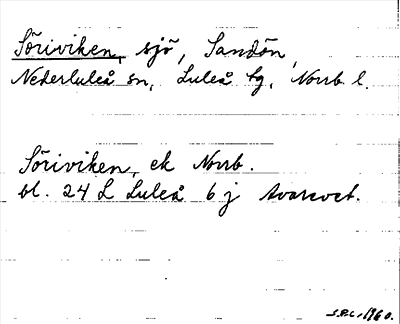 Söriviken, sjö, Sandön,
Nederluleå sn, Luleå tg, Norrb l.
Söriviken, ek Norrb.
bl. 24 L Luleå 6 j
S.E.L. 1960.